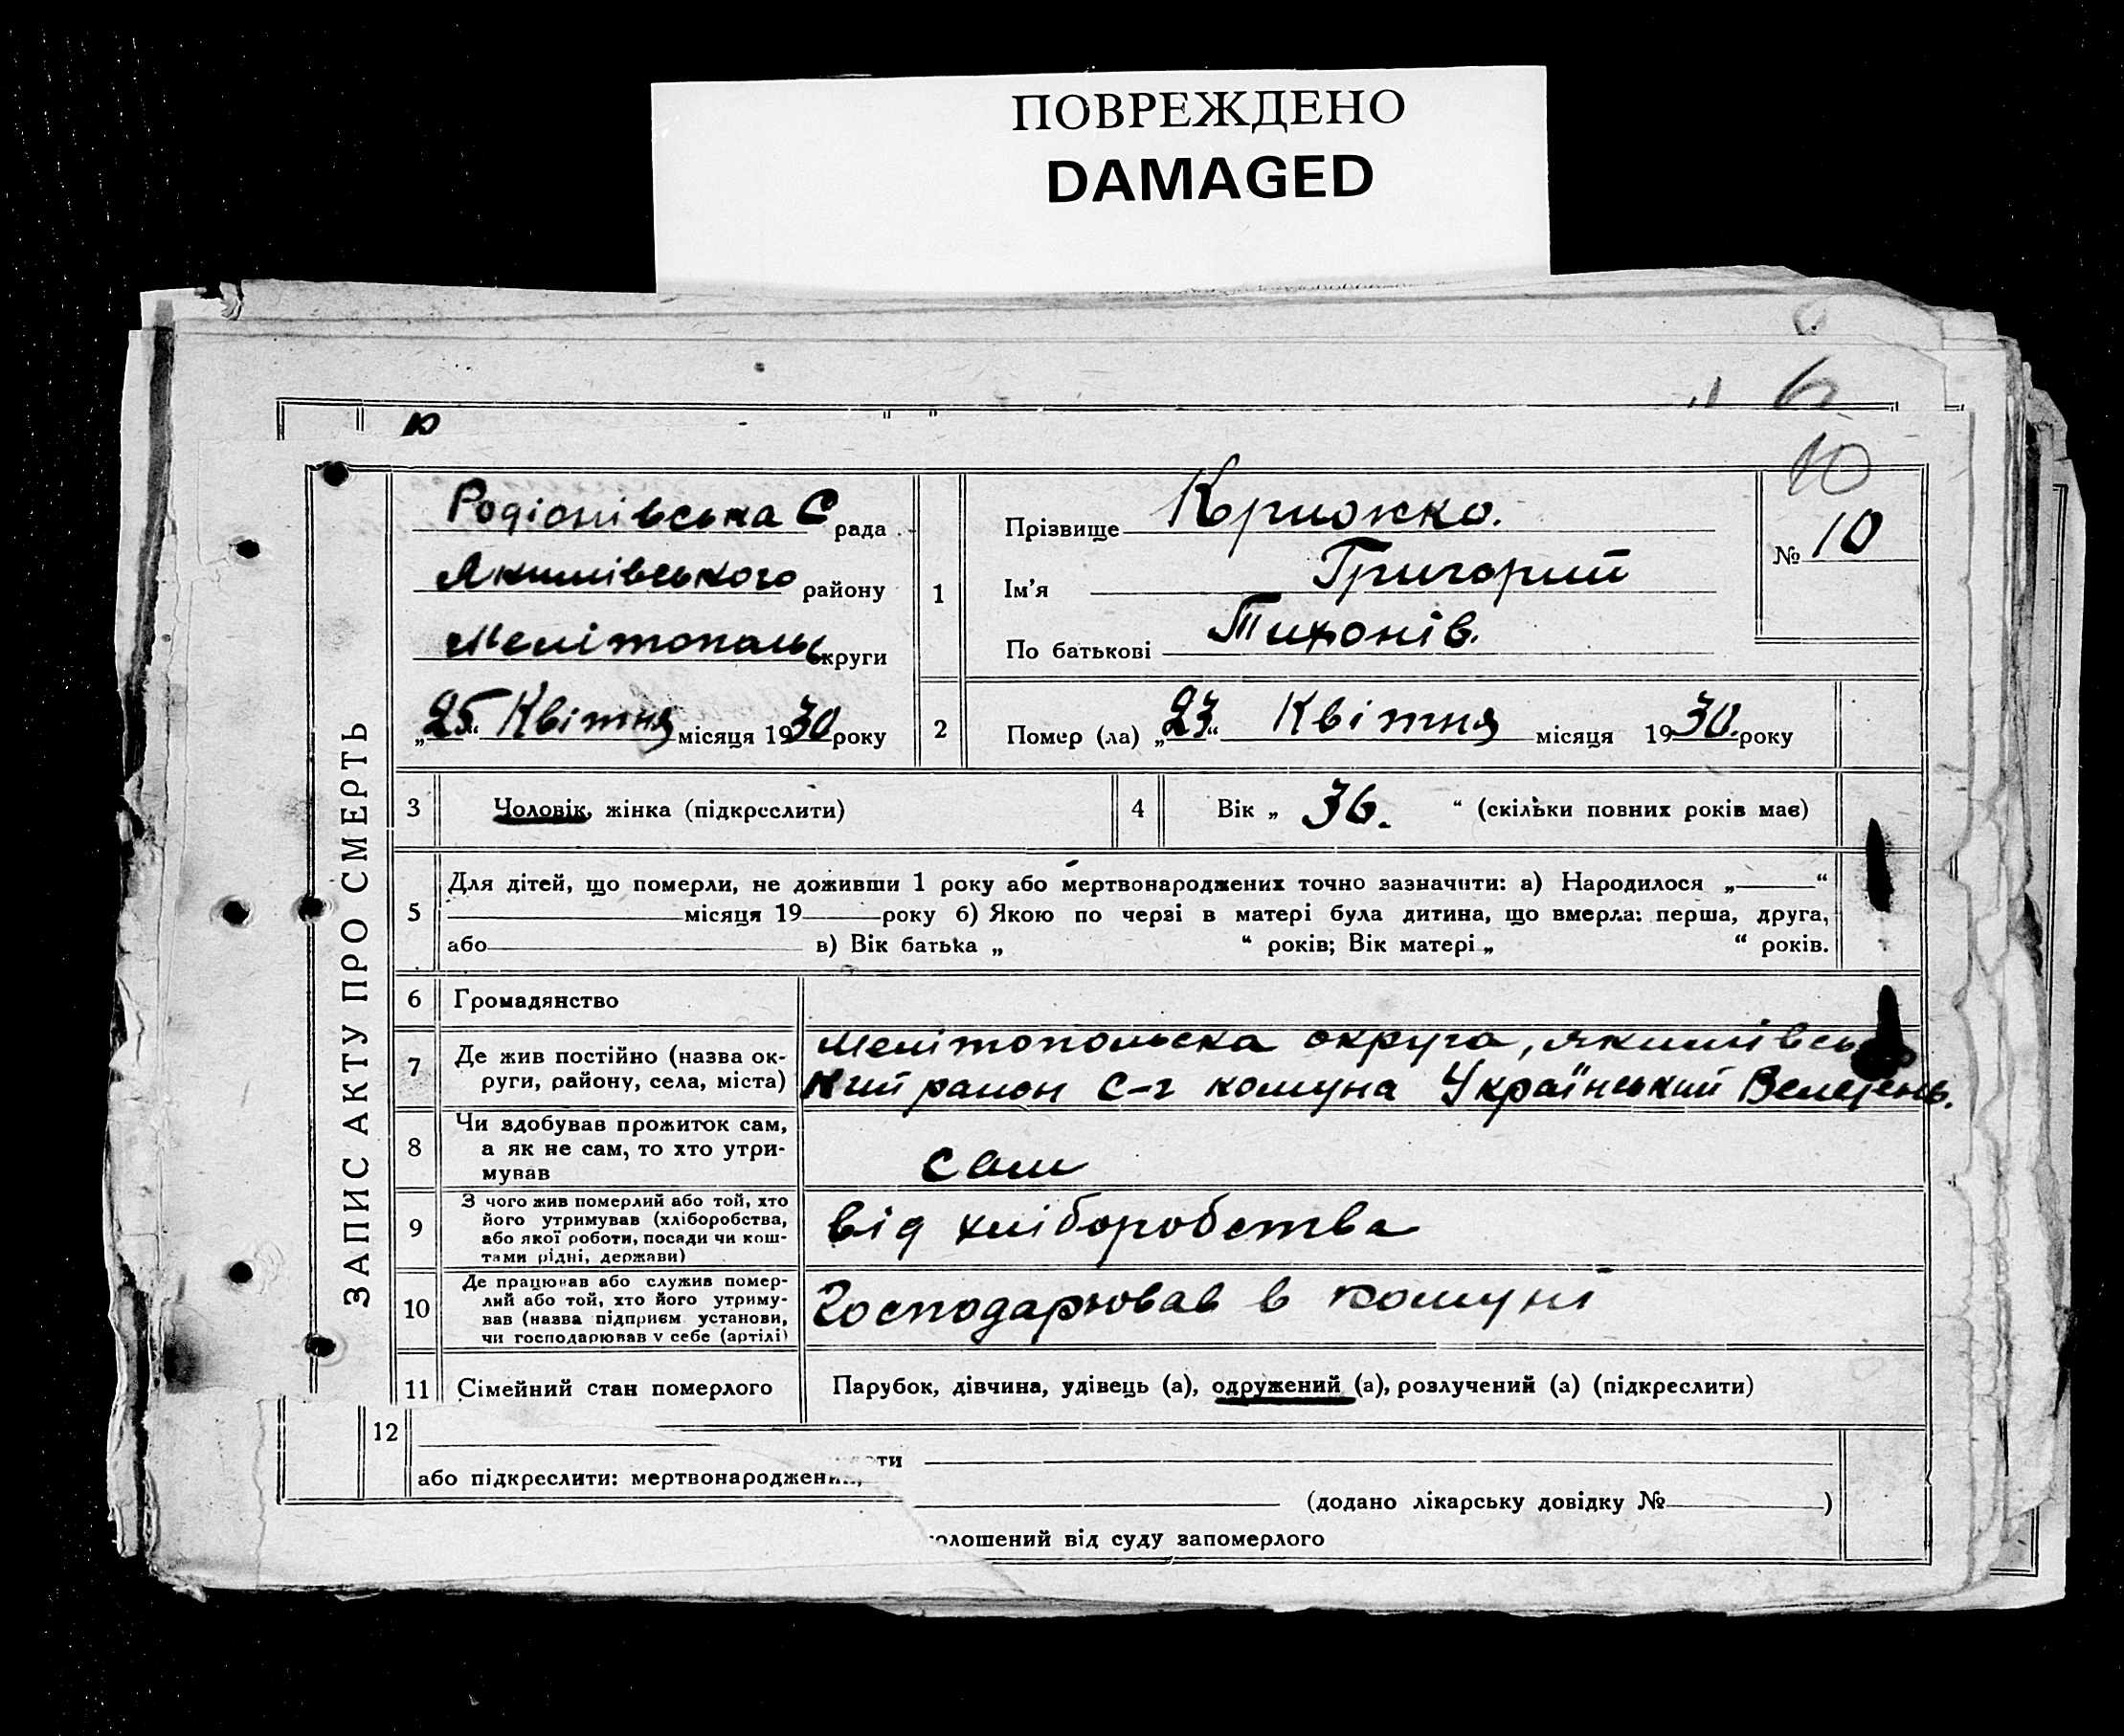 ПОВРЕЖДЕНО
DAMAGED
6
10
Родіонівська С рада
Якимівського району
Мелітополь округи
„25“ Квітня місяця 1930 року
1
Прізвище Крюжко.
Ім’я Григорий
По батькові Тихонів.
№ 10
2
Помер (ла) „23“ Квітня місяця 1930. року
ЗАПИС АКТУ ПРО СМЕРТЬ
3 Чоловік, жінка (підкреслити)
4 Вік „ 36. “ (скільки повних років має)
5 Для дітей, що померли, не доживши 1 року або мертвонароджених точно зазначити: а) Народилося „ “
місяця 19 року б) Якою по черзі в матері була дитина, що вмерла: перша, друга,
або в) Вік батька „ “ років; Вік матері „ “ років.
6 Громадянство
7 Де жив постійно (назва ок-
руги, району, села, міста)
Мелітопольска округа, якимівсь
кий район С-г комуна Український Велетень.
8 Чи здобував прожиток сам,
а як не сам, то хто утри-
мував
сам
9 З чого жив померлий або той, хто
його утримував (хліборобства,
або якої роботи, посади чи кош-
тами рідні, держави)
від хліборобства
10 Де працював або служив помер-
лий або той, хто його утриму-
вав (назва підприєм. установи,
чи господарював у себе (артілі)
Господарював в комуні
11 Сімейний стан померлого
Парубок, дівчина, удівець (а), одружений (а), розлучений (а) (підкреслити)
12
або підкреслити: мертвонароджений,
(додано лікарську довідку № )
від суду запомерлого